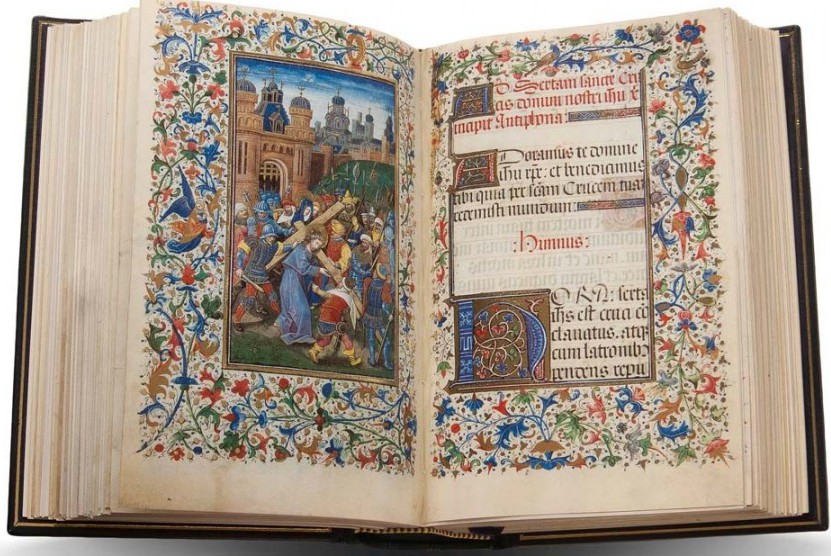 AD Sertam sancte Cru
cis domini nostri ihu x̄
incipit Antiphona:
ADoramus te domine
ihu xp̄e: et benedicimus
tibi quia per sc̄am Crucem tuā
redemisti mundum:
:Himnus:
HORA: serta
ihs̄ est cruci cō
clavatus. atqꝫ
cum latronibꝫ
pendens repu